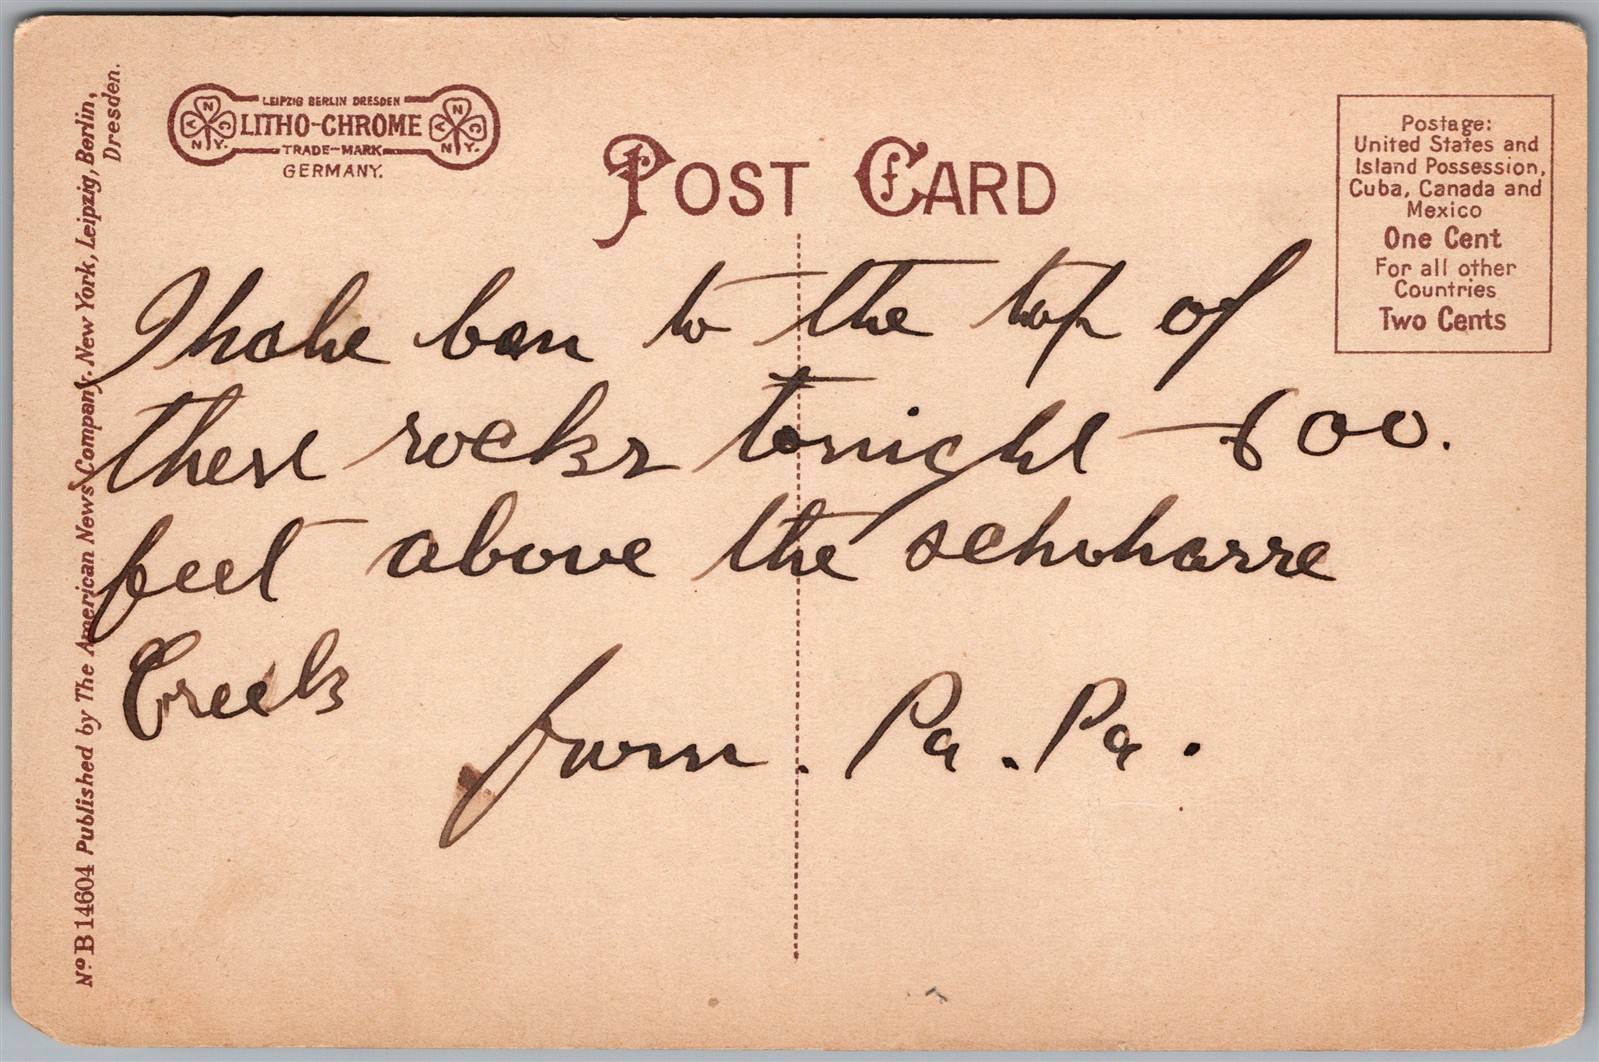 LEIPZIG BERLIN DRESDEN
LITHO-CHROME
TRADE-MARK
GERMANY.
A N C N.Y.
A N C N.Y.
POST CARD
Postage:
United States and
Island Possession,
Cuba, Canada and
Mexico
One Cent
For all other
Countries
Two Cents
I hahe ben to the top of
these rocks tonight - 600.
feet above the schoharre
Creek
furm. Pa. Pa.
No. B 14604 Published by The American News Company. New York, Leipzig, Berlin,
Dresden.